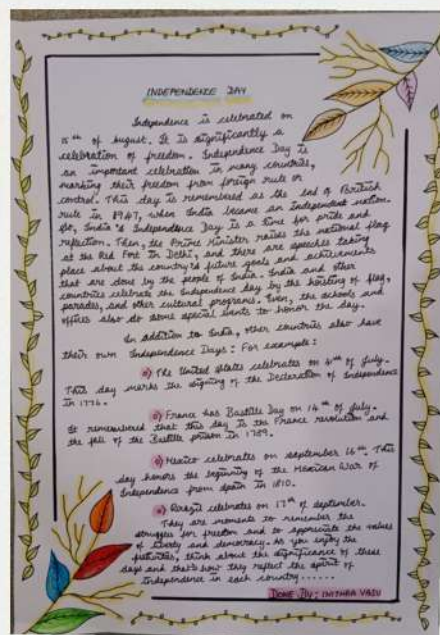 INDEPENDENCE DAY
Independence is celebrated on
15th of August. It is significantly a
celebration of freedom. Independence Day is
an important celebration in many countries,
marking their freedom from foreign rule or
control. This day is remembered as the end of British
rule in 1947, when India became an independent nation.
So, India's Independence Day is a time for pride and
reflection. Then, the Prime Minister raises the national flag
at the Red Fort in Delhi, and there are speeches taking
place about the country's future goals and achievements
that are done by the people of India. India and other
countries celebrate the Independence day by the hoisting of flag,
parades, and other cultural programs. Even, the schools and
offices also do some special events to honor the day.
In addition to India, other countries also have
their own Independence Days: For example:
The United States celebrates on 4th of July.
This day marks the signing of the Declaration of Independence
in 1776.
France has Bastille Day on 14th of July.
It remembered that this day is the France revolution and
the fall of the Bastille prison in 1789.
Mexico celebrates on september 16th. This
day honors the beginning of the Mexican War of
Independence from Spain in 1810.
Brazil celebrates on 17th of september.
They are moments to remember the
struggles for freedom and to appreciate the values
of liberty and democracy. As you enjoy the
festivities, think about the significance of these
days and that's how they reflect the spirit of
Independence in each country......
DONE BY: INITHAA VASU